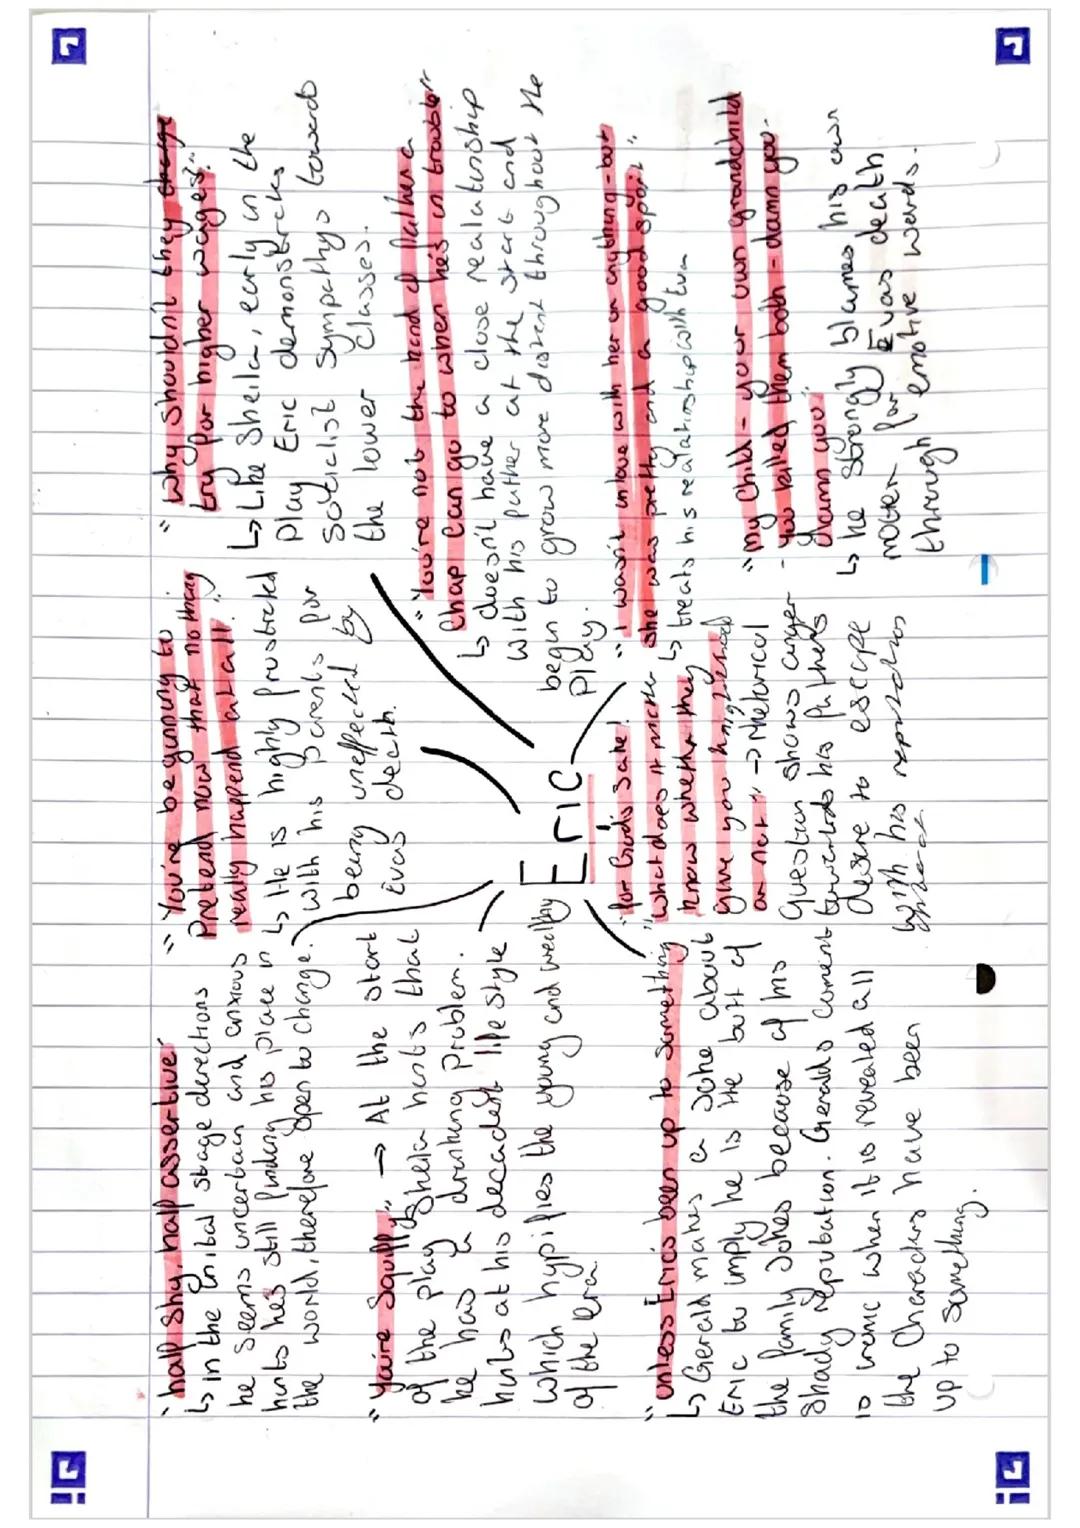 "half shy, half assertive"
↳ in the inital stage directions
he seems uncertain and anxious
hints hes still finding his place in
the world, therefore open to change.
"You're Squiffy" → At the start
of the play Sheila hints that
he has a drinking problem.
hints at his decadent lifestyle
which hypifies the young and wealthy
of the era.
"unless Eric's been up to something"
↳ Gerald makes a Joke about
Eric to imply he is the butt of
the family Jokes because of his
Shady reputation. Geralds coment
is ironic when it is revealed all
the Characters have been
up to something.
"You're beginning to
Pretend now that nothing
really happend at all."
↳ He is highly frustrated
with his parents for
being uneffected by
Evas death.
Eric
"for God's sake!
what does it matter
know whether they
give you knighthood
or not" → rhetorical
Question shows anger
towards his fathers
desire to escape
with his reputation
"Why Shouldn't they
try for higher wages?"
↳ Like Sheila, early in the
play Eric demonstrates
Socialist Sympathys towards
the lower Classes.
"You're not the kind of father a
Chap Can go to when he's in trouble"
↳ doesn't have a close realationship
with his father at the start and
begin to grow more distant throughout the
play.
"I wasn't in love with her or anything - but
she was pretty and a good sport"
↳ treats his realationship with Eva
"my Child - your own grandchild
- you killed them both - damn you -
damn you"
↳ he strongly blames his own
mother for Evas death
through emotive words.